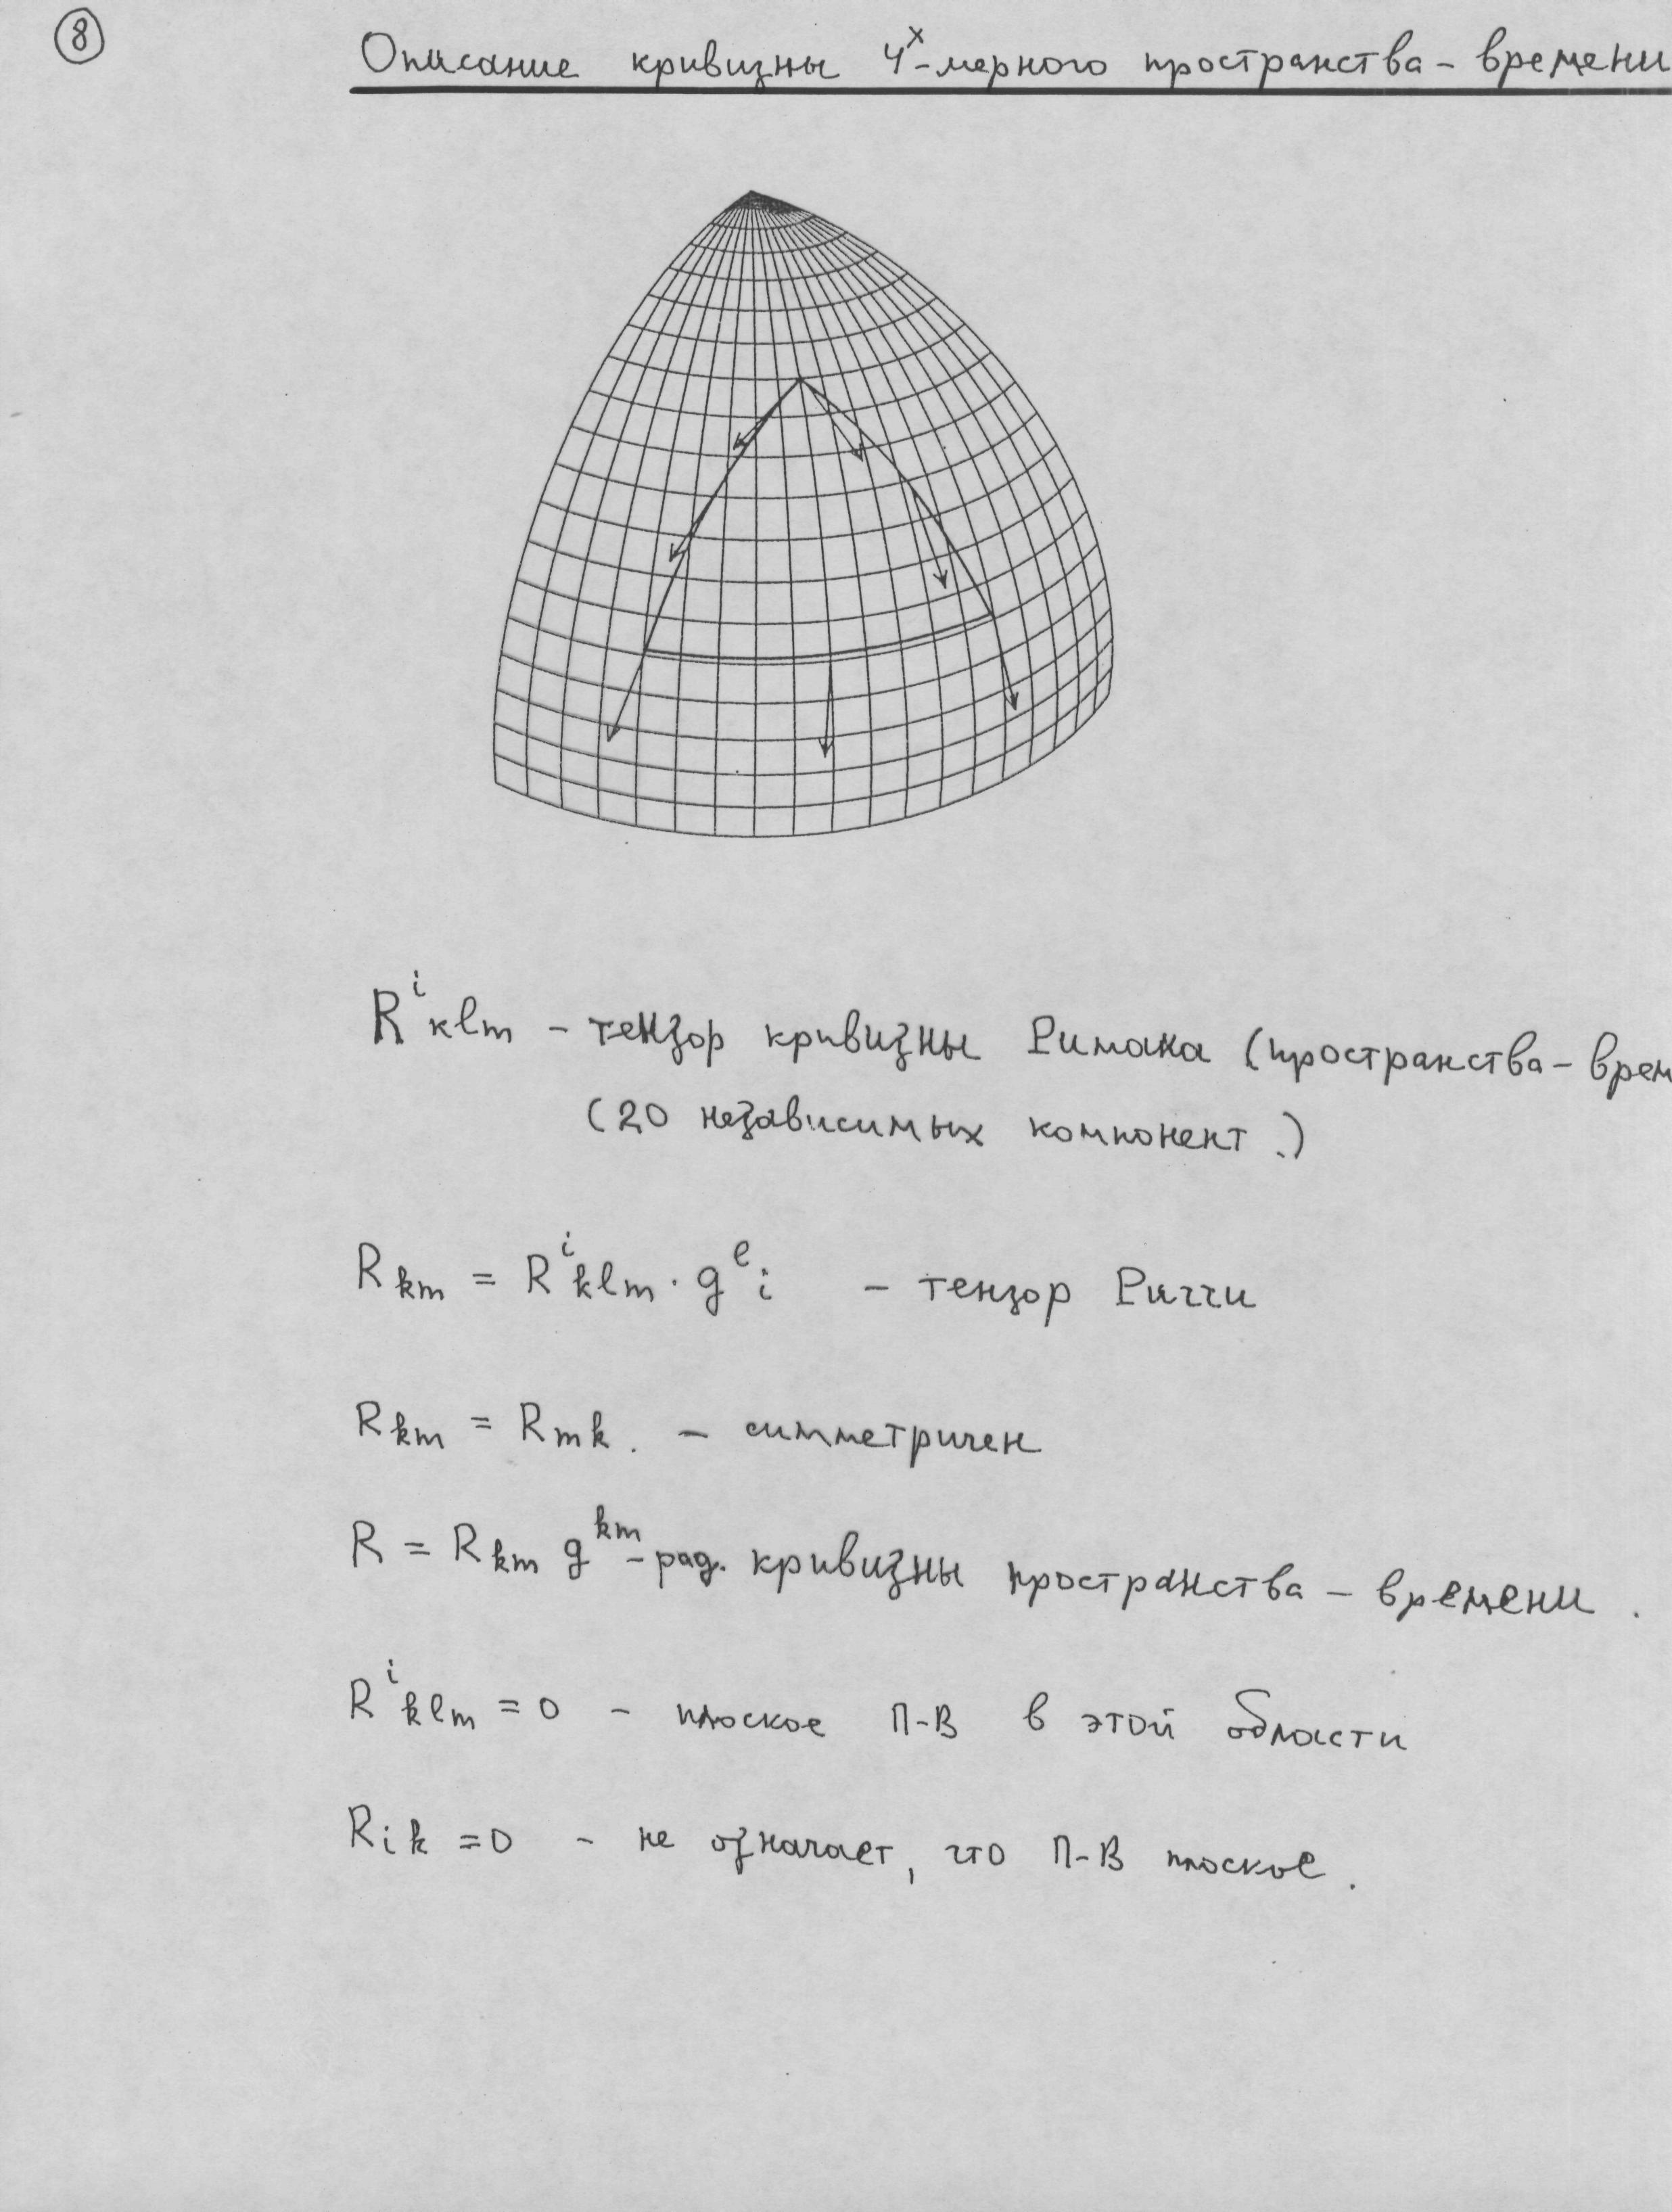 8
Описание кривизны 4х-мерного пространства-времени
R^i_klm - тензор кривизны Римана (пространства-врем
(20 независимых компонент.)
R_km = R^i_klm · g^l_i - тензор Риччи
R_km = R_mk. - симметричен
R = R_km g^km - рад. кривизны пространства-времени.
R^i_klm = 0 - плоское П-В в этой области
R_ik = 0 - не означает, что П-В плоское.